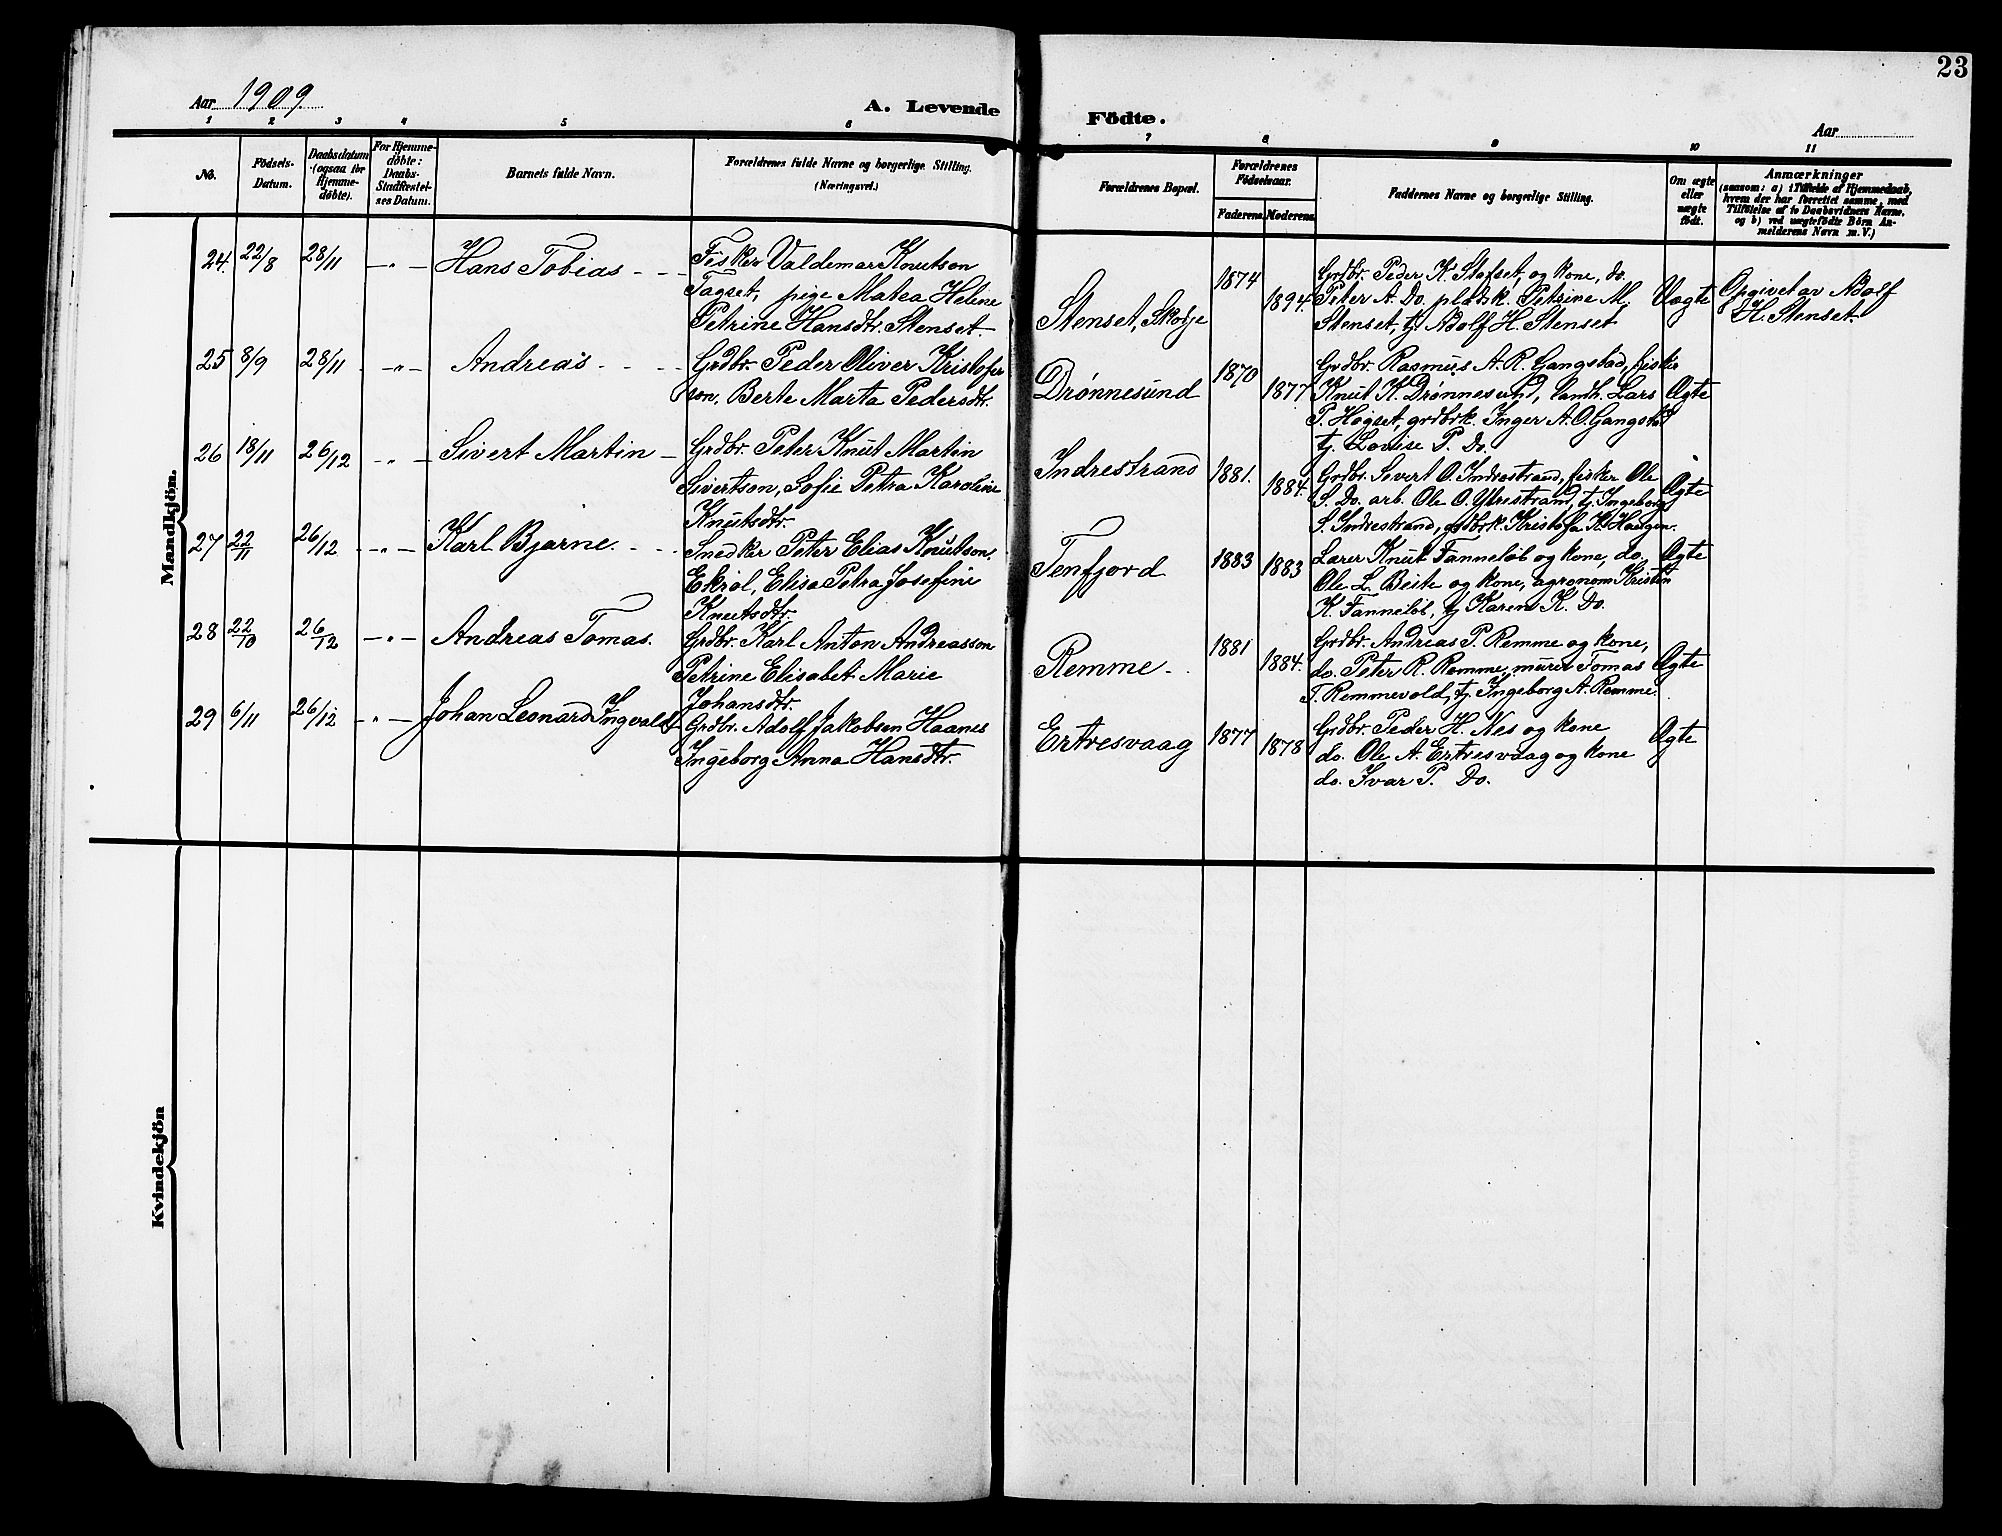 23
Aar 1909.
A. Levende
Födte.
Aar
1 2 3 4 5 6 7 8 9 10 11
No.
Födsels-Datum.
Daabsdatum (ogsaa for Hjemme-døbte).
For Hjemme-døbte: Daabs-Stadfæstel-ses Datum.
Barnets fulde Navn.
Forældrenes fulde Navne og borgerlige Stilling.
(Næringsvei.)
Forældrenes Bopæl.
Forældrenes Födselsaar.
Faderens. Moderens.
Faddernes Navne og borgerlige Stilling.
Om ægte eller uægte födt.
Anmærkninger
(saasom: a) i Tilfælde af Hjemmedaab,
hvem der har forrettet samme, med
Tilföielse af to Daabsvidners Navne,
og b) ved uægtefödte Börn An-
melderens Navn m. V.)
Mandkjön.
24. 22/8 28/11 -"- Hans Tobias
Fisker Valdemar Knutson
Tagset, pige Matea Helene
Petrine Hansdtr. Stenset
Stenset, Skodje
1874
1894.
Grdbr. Peder K. Stafset, og kone, do.
Peter A. Do. pladsk. Petrine M.
Stenset, tj Adolf H. Stenset
Uægte
Opgivet av Adolf
H. Stenset.
25 8/9 28/11 -"- Andreas
Grdbr. Peder Oliver Kristofer
son, Berte Marta Pedersdtr.
Drønnesund
1870
1877
Grdbr. Rasmus A. R. Gangstad, fisker
Knut K. Drønnesund, landh. Lars
P. Høgset, grdbrk. Inger A. O. Gangstad
tj. Lovise P. Do.
Ægte
26 18/11 26/12 -"- Sivert Martin
Grdbr. Peter Knut Martin
Sivertson, Sofie Petra Karoline
Knutsdtr.
Indrestrand
1881.
1884.
Grdbr. Severt O. Indrestrand, fisker Ole
S. Do. arb. Ole O. Ytrestrand, tj. Ingeborg
S. Indrestrand, grdbrk. Kristofa K. Haugen.
Ægte
27 22/11 26/12 -"- Karl Bjarne.
Snedker Peter Elias Knutson.
Ekrol, Elisa Petra Josefine
Knutsdtr.
Tenfjord
1883
1883
Lærer Knut Fanneløb og kone, do.
Ole L. Beite og kone, agronom Kristen
K. Fanneløb, tj Karen K. Do.
Ægte
28 22/10 26/12 -"- Andreas Tomas.
Grdbr. Karl Anton Andreasson
Petrine Elisabet Marie
Johansdtr.
Remme
1881
1884.
Grdbr. Andreas P. Remme og kone,
do. Peter R. Remme, murer Tomas
T. Remmevold, tj. Ingeborg A. Remme.
Ægte
29 6/11 26/12 -"- Johan Leonard Ingvald
Grdbr. Adolf Jakobsen Haanes
Ingeborg Anna Hansdtr.
Ertresvaag
1877
1878
Grdbr. Peder H. Nes og kone
do. Ole A. Ertresvaag og kone
do. Ivar P. Do.
Ægte
Kvindekjön